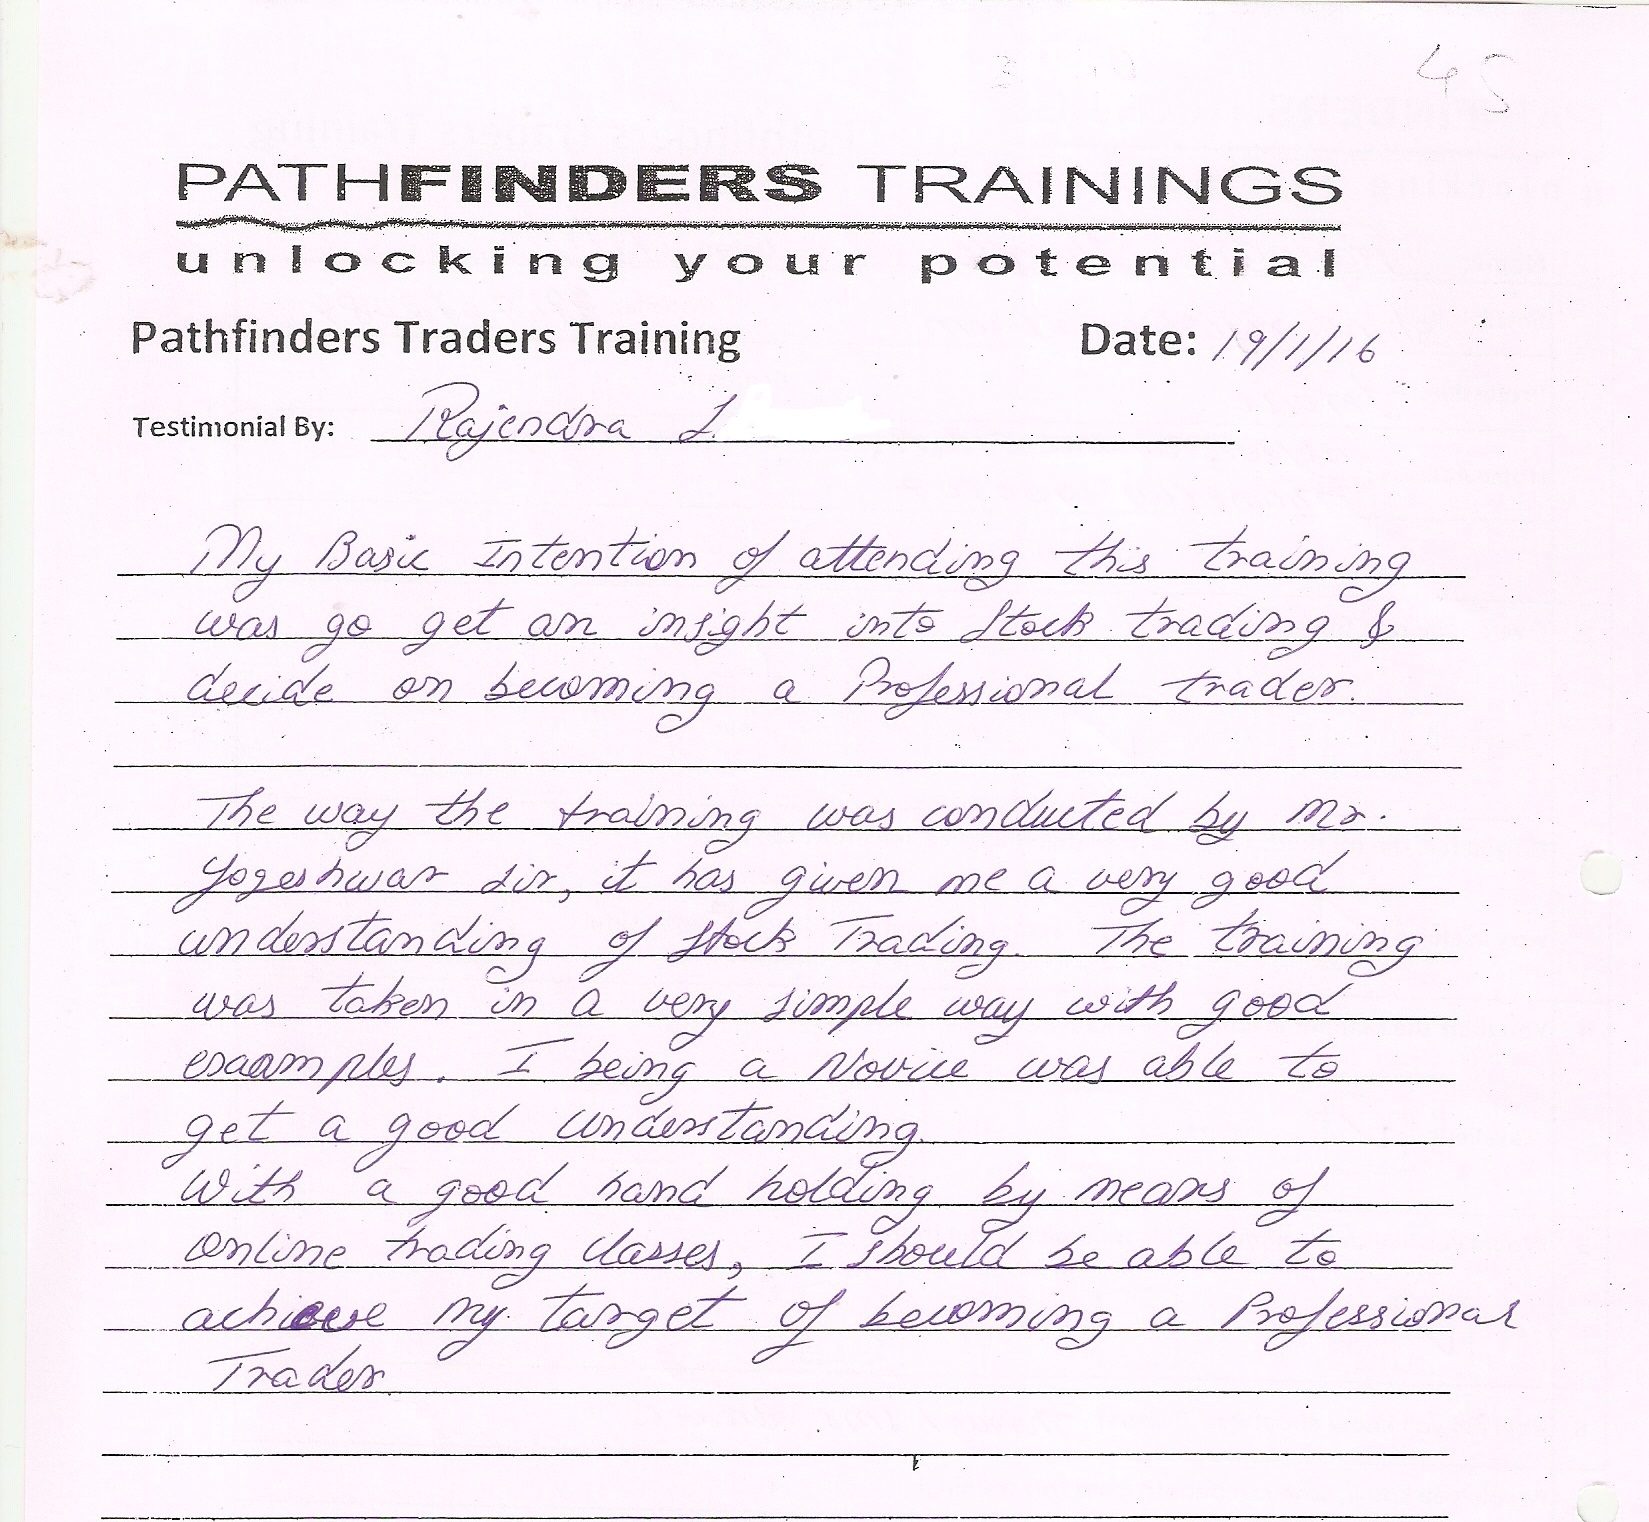 45
PATHFINDERS TRAININGS
unlocking your potential
Pathfinders Traders Training Date: 19/1/16
Testimonial By: Rajendra L.
My Basic Intention of attending this training
was go get an insight into Stock trading &
decide on becoming a Professional trader.
The way the training was conducted by Mr.
Yogeshwar Sir, it has given me a very good
understanding of Stock Trading. The training
was taken in a very simple way with good
exaamples. I being a Novice was able to
get a good understanding.
With a good hand holding by means of
online trading classes, I should be able to
achieve my target of becoming a Professional
Trader